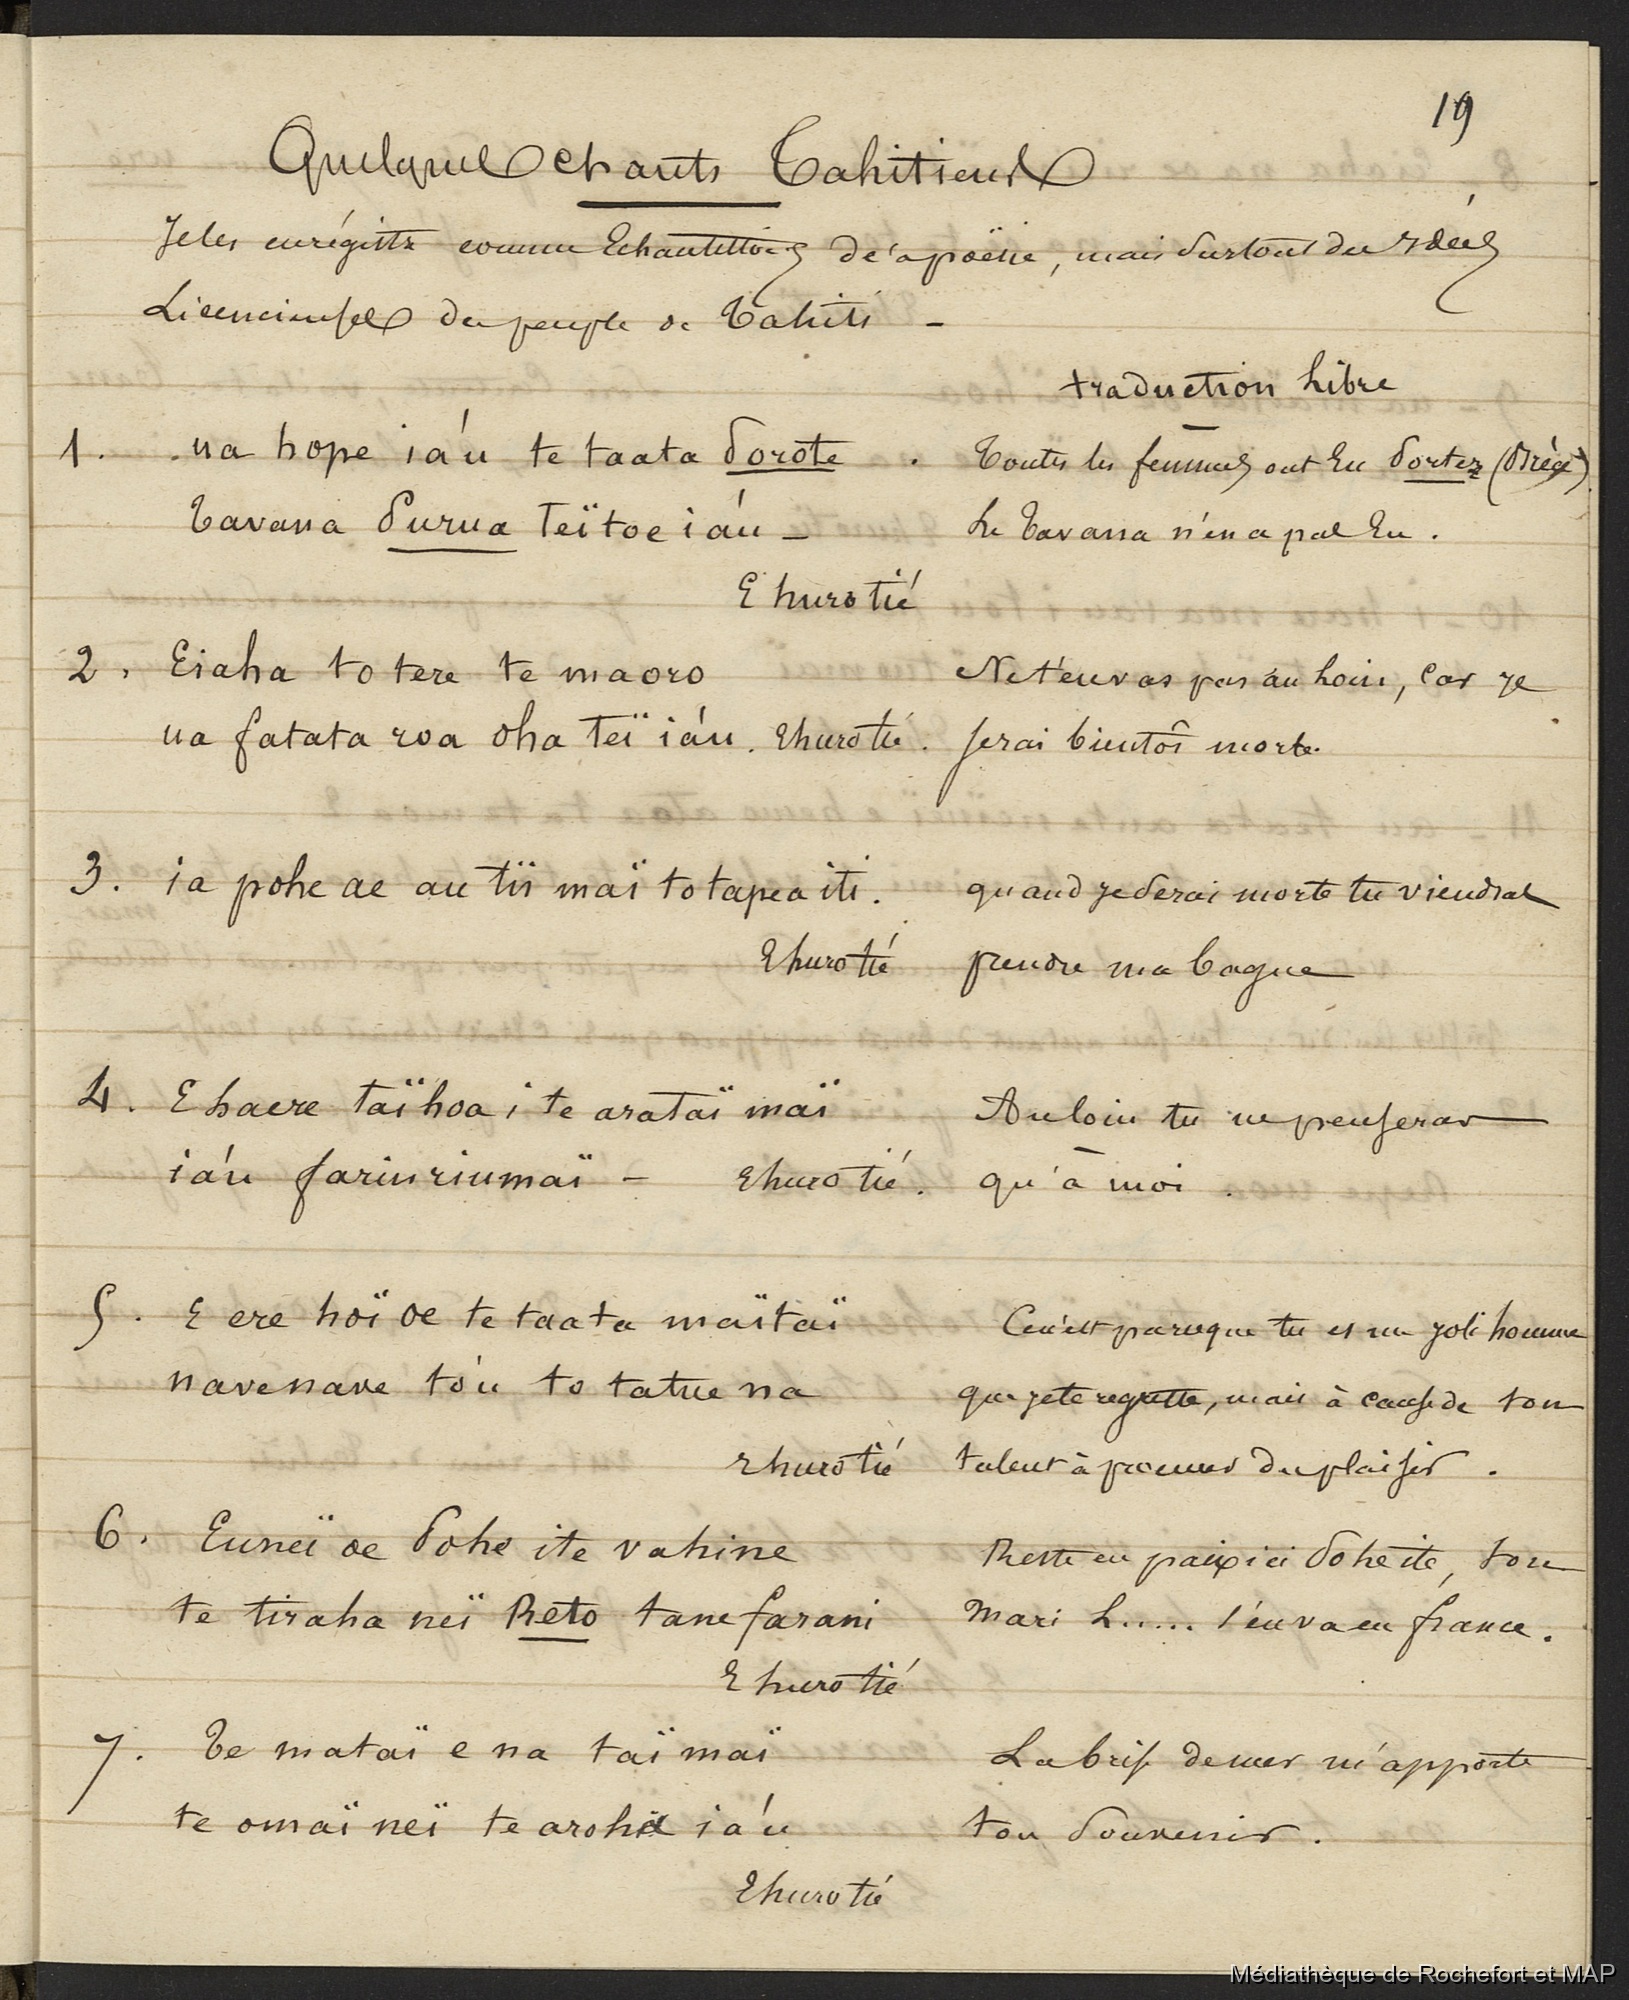 19
Quelques chants Tahitiens
Je les enrégistre comme Echantillons de la poësie, mais surtout des idées
Licencieuses du peuple de Tahiti -
traduction libre
1. na hope iá'u te taata Sorote. Toutes les femmes ont eu Sortez
Tavana Surua teïtoe iáu - Le Tavana n'en a pas Eu.
E hurotié
2. Eiaha to tere te maoro Ne t'en vas pas au loin, car je
ua fatata roa oha teï iáu. Ehurotié. serai bientôt morte.
3. ia pohe ae au tii maï to tapea iti. quand je serai morte tu viendras
Ehurotié prendre ma bague
4. E haere taïhoa i te arataï maï Au loin tu ne penseras
iáu fariuriumaï - Ehurotié. qu'à moi.
5. E ere hoï oe te taata maïtaï Ce n'est parceque tu es un joli homme
navenave tóu to tatue na que je te regrette, mais à cause de ton
Ehurotié talent à procurer du plaisir.
6. Euneï oe Sohe ite vahine Reste en paix ici Soheite, ton
te tiraha neï Reto tane farani Mari L..... s'en va en france.
E hurotié
7. Te mataï e na taï maï La brise de mer m'apporte
te omaï neï te aroha iá'u ton souvenir.
Ehurotié
Médiathèque de Rochefort et MAP